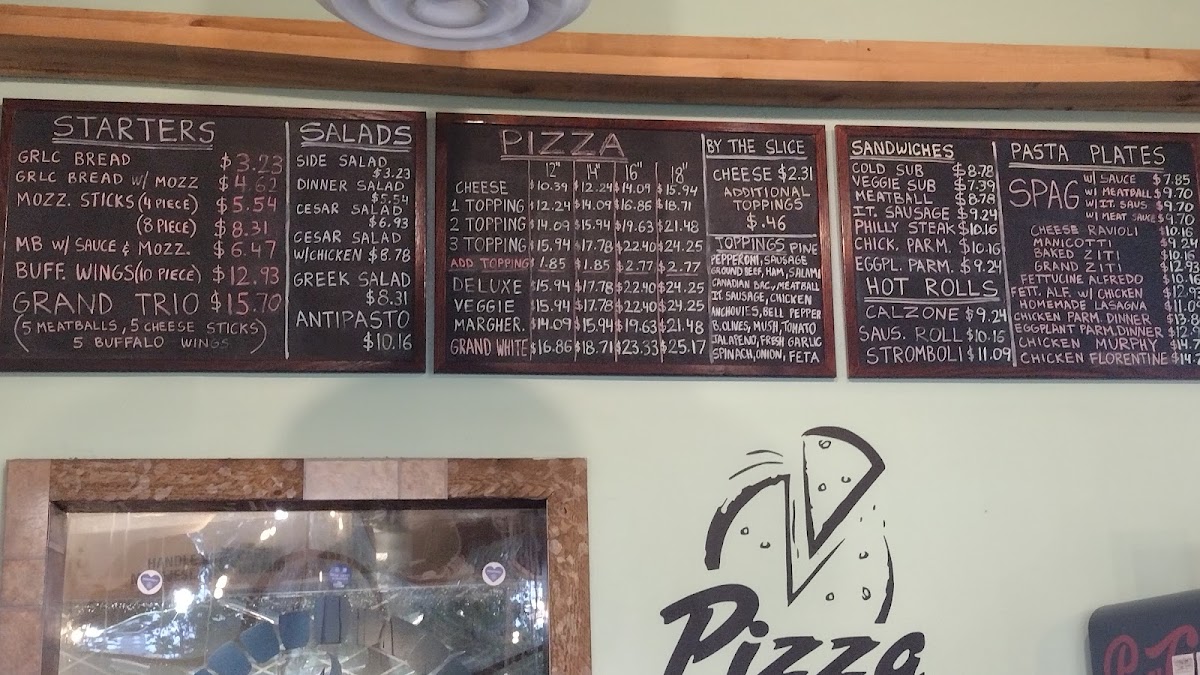 STARTERS
GRLC BREAD $3.23
GRLC BREAD W/ MOZZ $4.62
MOZZ. STICKS (4 PIECE) $5.54
(8 PIECE) $8.31
MB W/ SAUCE & MOZZ. $6.47
BUFF. WINGS (10 PIECE) $12.93
GRAND TRIO $15.70
(5 MEATBALLS, 5 CHEESE STICKS)
5 BUFFALO WINGS
SALADS
SIDE SALAD
$3.23
DINNER SALAD
$5.54
CESAR SALAD
$6.93
CESAR SALAD
W/CHICKEN $8.78
GREEK SALAD
$8.31
ANTIPASTO
$10.16
PIZZA
12" 14" 16" 18"
CHEESE $10.39 $12.24 $14.09 $15.94
1 TOPPING $12.24 $14.09 $16.86 $18.71
2 TOPPING $14.09 $15.94 $19.63 $21.48
3 TOPPING $15.94 $17.78 $22.40 $24.25
ADD TOPPING $1.85 $1.85 $2.77 $2.77
DELUXE $15.94 $17.78 $22.40 $24.25
VEGGIE $15.94 $17.78 $22.40 $24.25
MARGHER. $14.09 $15.94 $19.63 $21.48
GRAND WHITE $16.86 $18.71 $23.33 $25.17
BY THE SLICE
CHEESE $2.31
ADDITIONAL
TOPPINGS
$.46
TOPPINGS PINE
PEPPERONI, SAUSAGE
GROUND BEEF, HAM, SALAMI
CANADIAN BAC., MEATBALL
IT. SAUSAGE, CHICKEN
ANCHOVIES, BELL PEPPER
B.OLIVES, MUSH, TOMATO
JALAPEÑO, FRESH GARLIC
SPINACH, ONION, FETA
SANDWICHES
COLD SUB $8.78
VEGGIE SUB $7.39
MEATBALL $8.78
IT. SAUSAGE $9.24
PHILLY STEAK $10.16
CHICK. PARM. $10.16
EGGPL. PARM. $9.24
HOT ROLLS
CALZONE $9.24
SAUS. ROLL $10.16
STROMBOLI $11.09
PASTA PLATES
SPAG W/ SAUCE $7.85
W/ MEATBALL $9.70
W/ IT. SAUS $9.70
W/ MEAT SAUCE $9.70
CHEESE RAVIOLI $10.16
MANICOTTI $9.24
BAKED ZITI $10.16
GRAND ZITI $12.93
FETTUCINE ALFREDO $10.16
FETT. ALF. W/ CHICKEN
HOMEMADE LASAGNA
CHICKEN PARM. DINNER
EGGPLANT PARM. DINNER
CHICKEN MURPHY
CHICKEN FLORENTINE
Pizza